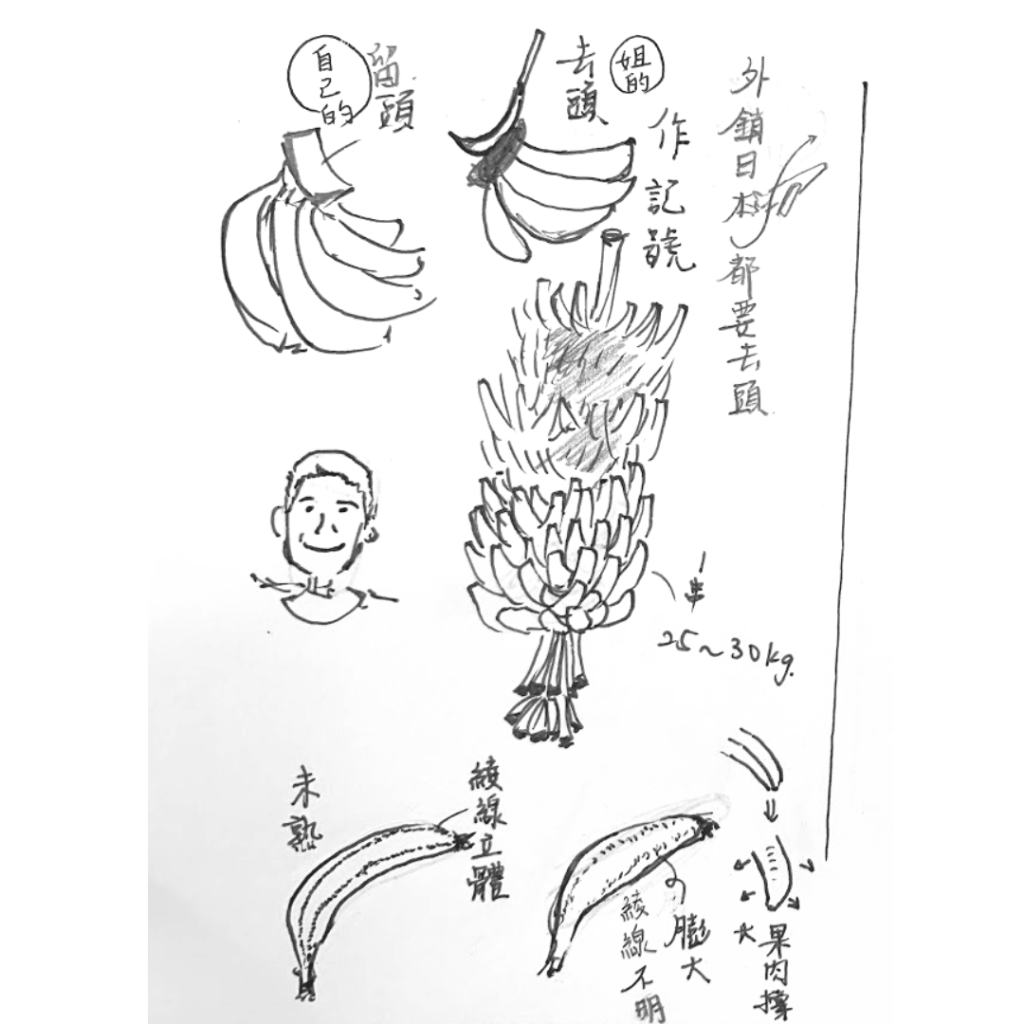 外銷日本都要去頭
姐的
去頭
作記號
自己的
留頭
1串
25~30kg.
未熟
綾線立體
膨大
綾線不明
果肉撐
大